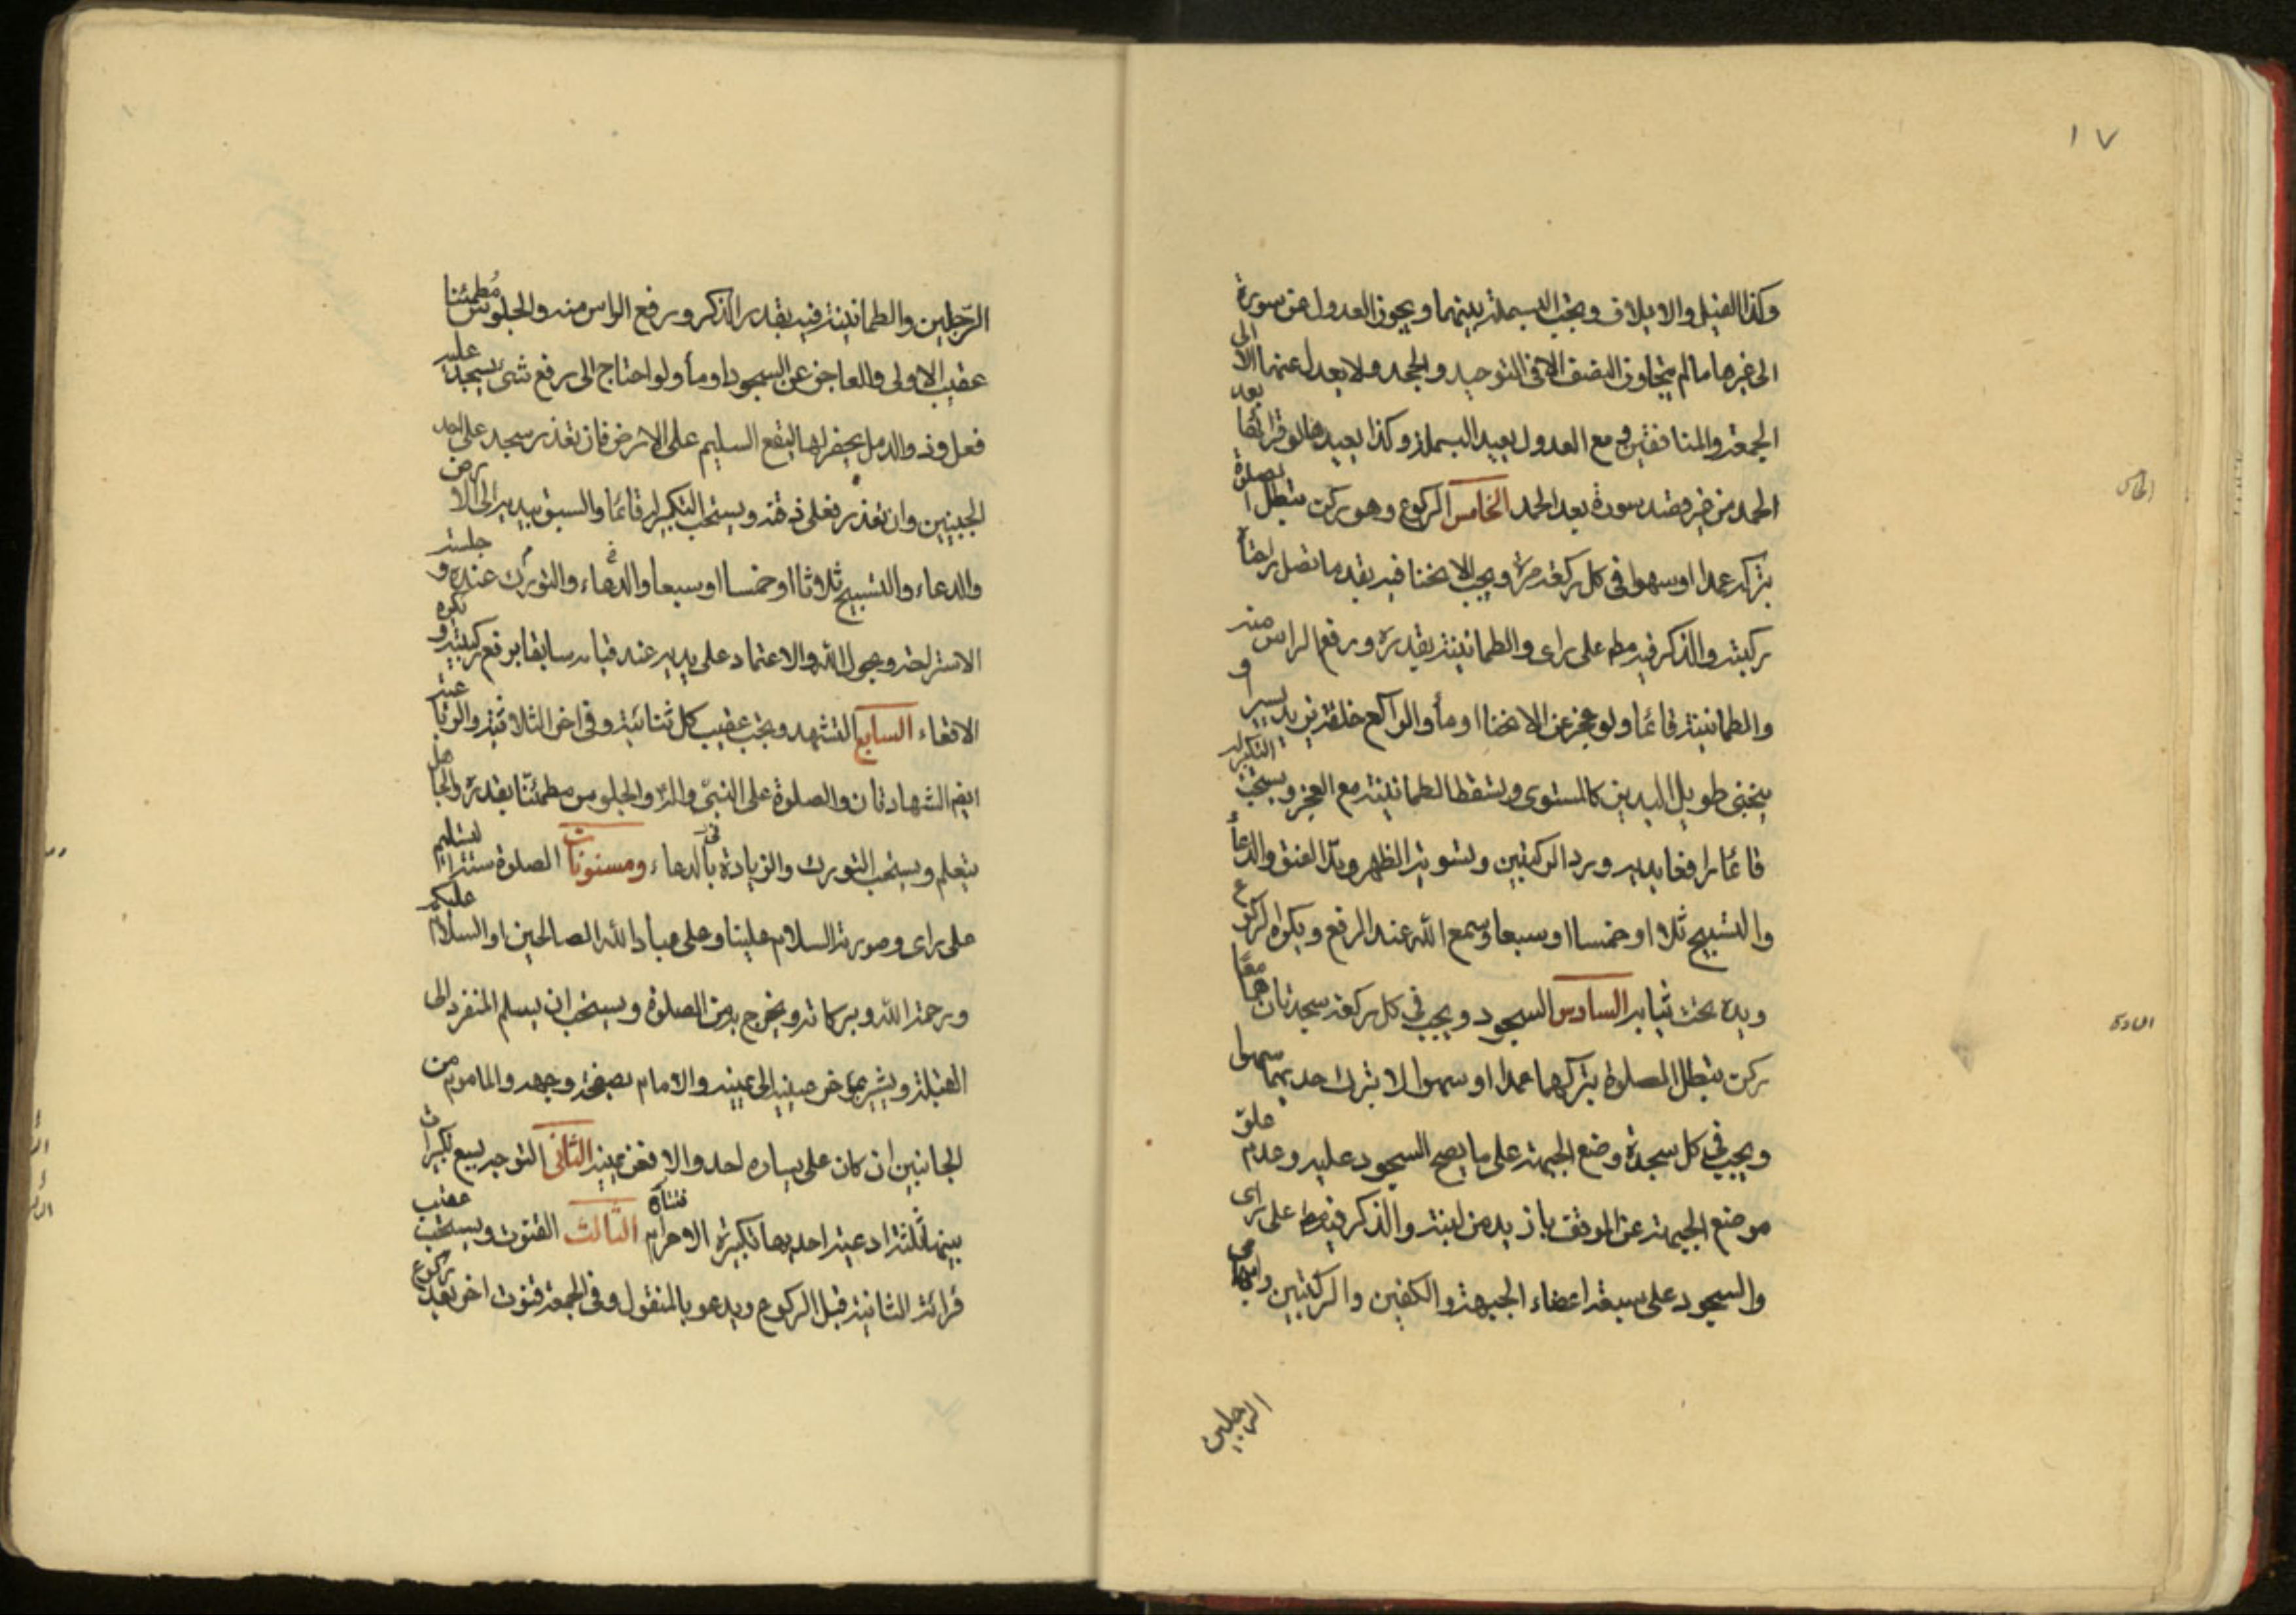 ١٧
وكذا الفيل والايلاف وتجب البسملة بينهما ويجوز العدول عن سورة
الى غيرها مالم يتجاوز النصف الا فى التوحيد والجحد ولا يعدل عنهما الا الى
الجمعة والمنافقين ومع العدول يعيد البسملة وكذا يعيدها لو قرأها بعد
الحمد من غير قصد سورة بعد الحمد الخامس الركوع وهو ركن تبطل الصلوة
بتركه عمدا او سهوا فى كل ركعة مرة ويجب الانحنا فيه بقدر ما تصل راحتاه
ركبتيه والذكر فيه مطلقا على راى والطمانينة بقدره ورفع الراس منه
والطمانينة قائما ولو عجز عن الانحنا اومأ والراكع خلقة يزيد يسيرا و
ينحنى طويل اليدين كالمستوى وتسقط الطمانينة مع العجز ويستحب التكبير له
قائما رافعا يديه ورد الركبتين وتسوية الظهر ومد العنق والدعاء
والتسبيح ثلاثا او خمسا او سبعا وسمع الله عند الرفع ويكره الركوع
ويده تحت ثيابه السادس السجود ويجب فى كل ركعة سجدتان هما معا
ركن تبطل الصلوة بتركهما عمدا او سهوا لا بترك احديهما سهوا
ويجب فى كل سجدة وضع الجبهة على ما يصح السجود عليه وعدم علو
موضع الجبهة عن الموقف بازيد من لبنة والذكر فيه مط على راى
والسجود على سبعة اعضاء الجبهة والكفين والركبتين وابهامى
الرجلين
الخامس
السادس
الرجلين والطمانينة فيه بقدر الذكر ورفع الراس منه والجلوس مطمئنا
عقيب الاولى والعاجز عن السجود اومأ ولو احتاج الى رفع شئ يسجد عليه
فعل وذو الدمل يحفر لها ليقع السليم على الارض فان تعذر سجد على احد
الجبينين وان تعذر فعلى ذقنه ويستحب التكبير له قائما والسبق بيديه الى الارض
والدعاء والتسبيح ثلاثا او خمسا او سبعا والدعاء والتورك عند جلسة
الاستراحة وبحول الله والاعتماد على يديه عند قيامه سابقا برفع ركبتيه ويكره
الاقعاء السابع التشهد ويجب عقيب كل ثنائية وفى اخر الثلاثية والرباعية
ايضا الشهادتان والصلوة على النبى وآله والجلوس مطمئنا بقدره والجاهل
يتعلم ويستحب التورك والزيادة فى الدعاء ومسنونات الصلوة ستة ا التسليم
على راى وصورته السلام علينا وعلى عباد الله الصالحين او السلام عليكم
ورحمة الله وبركاته ويخرج به من الصلوة ويستحب ان يسلم المنفرد الى
القبلة ويشير بمؤخر عينيه الى يمينه والامام بصفحة وجهه والماموم من
الجانبين ان كان على يساره احد والا فعن يمينه الثانى التوجه بسبع تكبيرات
بينها ثلثة ادعية احديها تكبيرة الاحرام الثالث القنوت ويستحب عقيب
قرائة الثانية قبل الركوع ويدعو بالمنقول وفى الجمعة قنوت اخر بعد ركوع